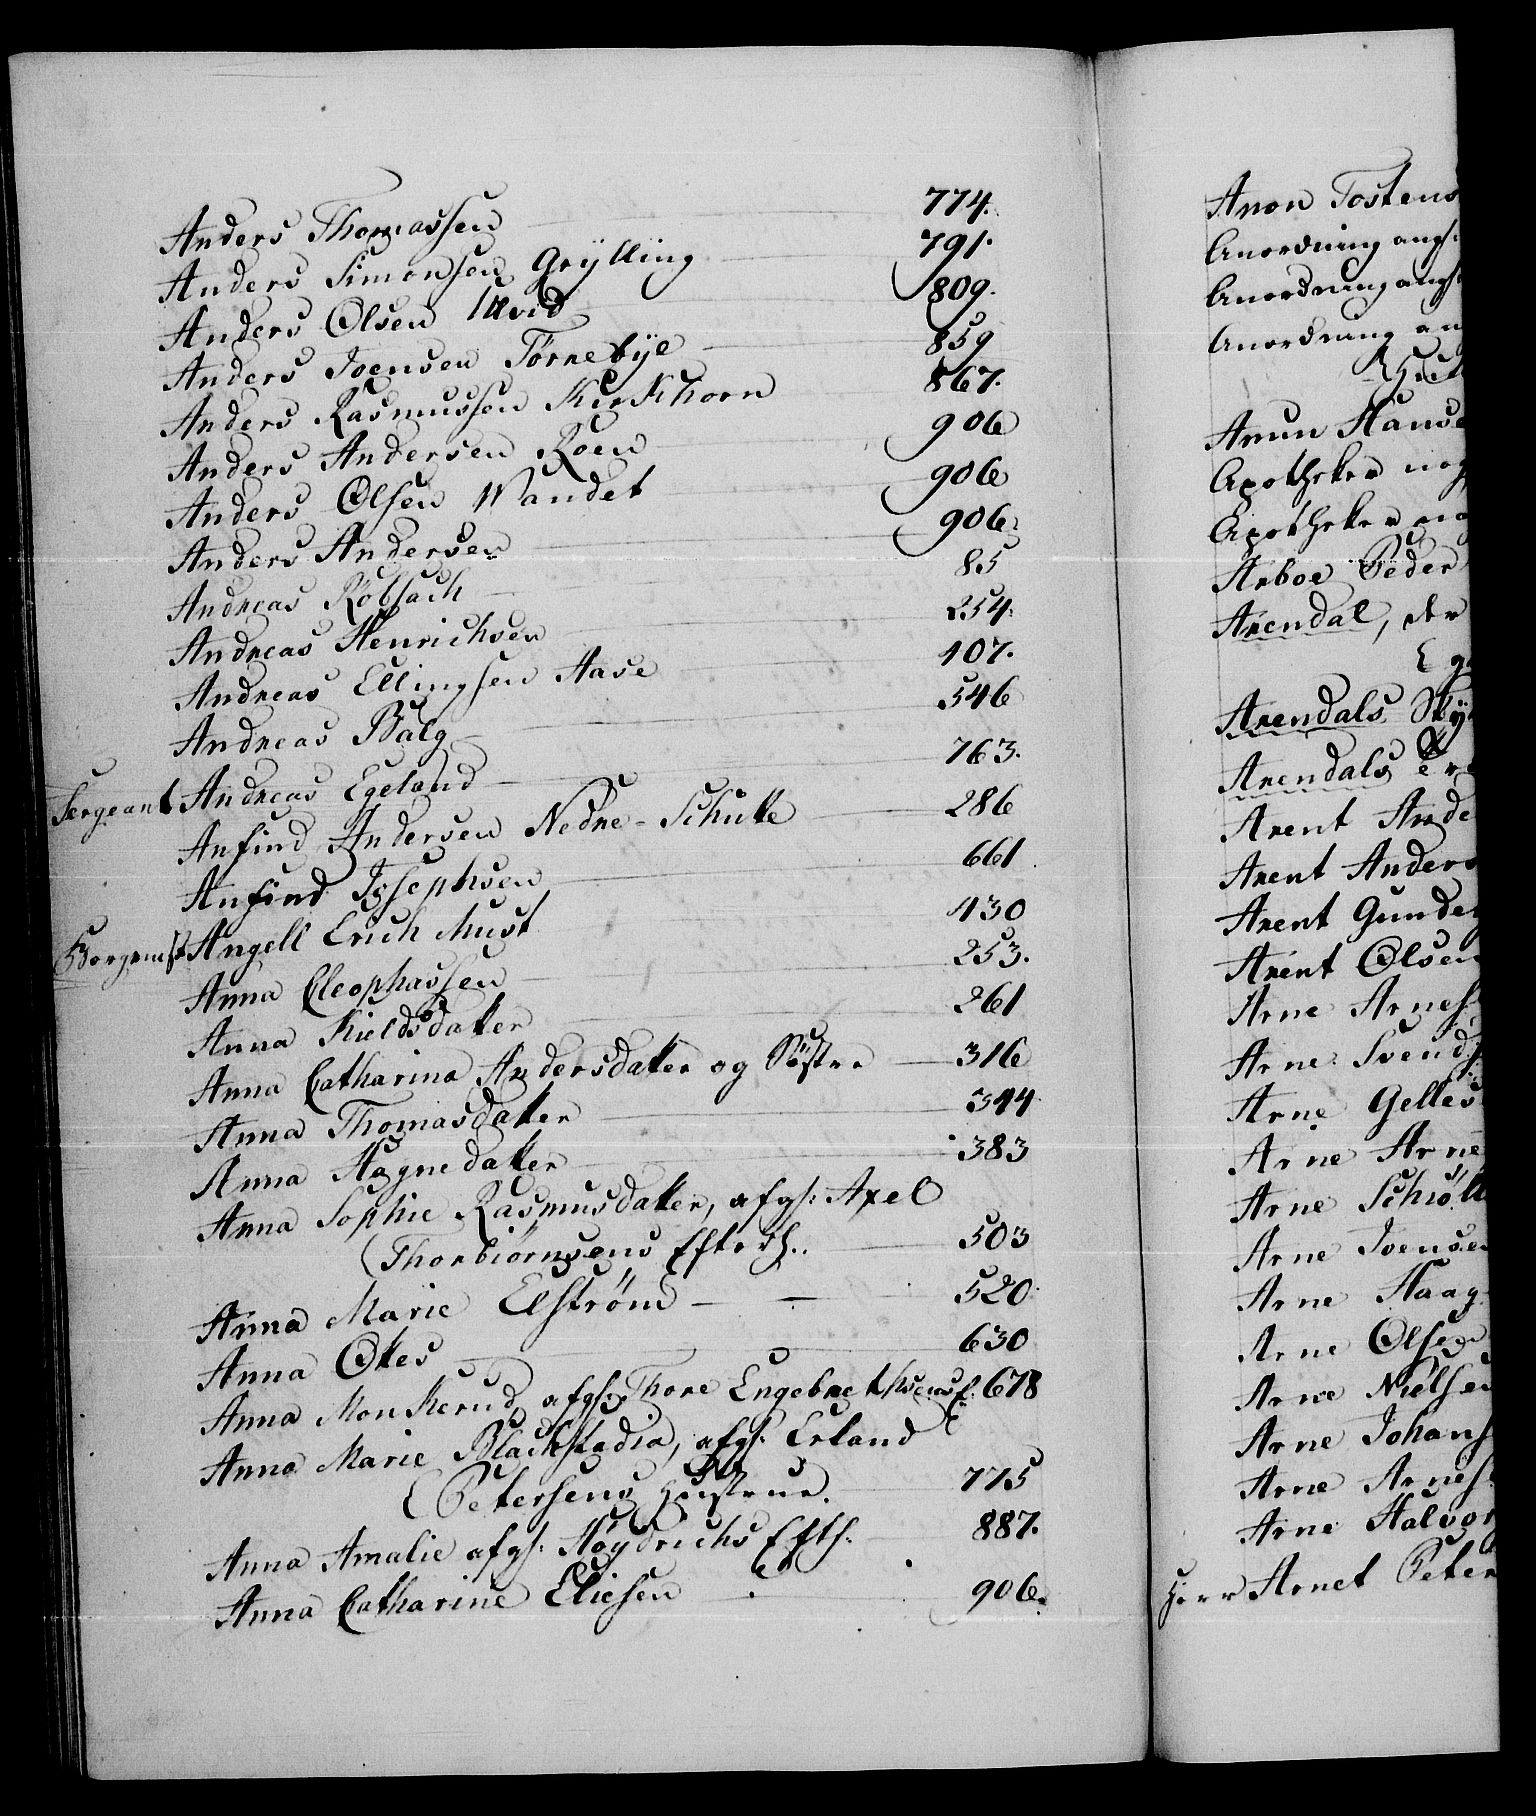 Anders Thomassen 774.
Anders Simonsen Grÿlling 791.
Anders Olsen Hvid 809.
Anders Joensen Tørnebÿe 859
Anders Rasmussen Kirkhorn 867.
Anders Andersen Roen 906
Anders Olsen Wandet 906
Anders Andersen 906.
Andreas Röbsach 85
Andreas Henrichsen 254.
Andreas Ellingsen Aase 407.
Andreas Balg 546
Sergeant Andreas Egeland 763.
Anfind Andersen Nedre-Schutte 286
Anfind Josephsen 661
Borgemst Angell Erich Must 430
Anna Cleophassen 253.
Anna Kieldsdatter 261
Anna Catharina Andersdatter og Søstre 316
Anna Thomasdatter 344
Anna Hagnedatter 383
Anna Sophie Rasmusdatter, afgs: Axel
Thorbiörnsens Efterls. 503
Anna Marie Elström 520.
Anna Okes 630
Anna Monkerud, afgs: Thore Engebrethsens E. 678
Anna Marie Blackstadia, afgs: Erland
Petersens Hustrue. 775
Anna Amalie afgs: Höydrichs Efts. 887.
Anna Catharine Eliesen 906.
Anon Tostens
Anordning angs:
Anordning angs
Anordning ang
Amun Hanse
Apotheker
Apotheker
Arboe Peder
Arendal, der
Arendals
Arendals
Arent Ande
Arent Anders
Arent Gunder
Arent Olsen
Arne Arnes
Arne Svends
Arne Gelles
Arne Arne
Arne Schiöll
Arne Joensen
Arne Haag
Arne Olsen
Arne Nielsen
Arne Johans
Arne Arnes
Arne Halvor
Herr Arnet Peter